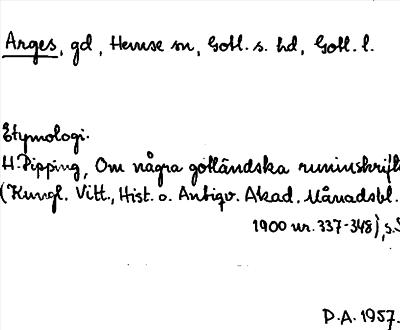 Arges, gd, Hemse sn, Gotl. s. hd, Gotl. l.
Etymologi.
H. Pipping, Om några gotländska runinskrifte
(Kungl. Vitt., Hist. o. Antiqv. Akad. Månadsbl.
1900 nr. 337-348), s.
P.A. 1957.